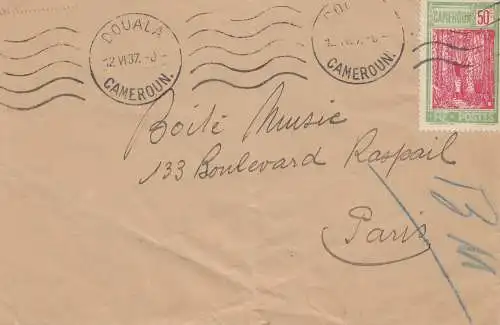 DOUALA
2 VI 37
CAMEROUN.
CAMEROUN.
CAMEROUN 50c
POSTES
Boîte Music
133 Boulevard Raspail
Paris